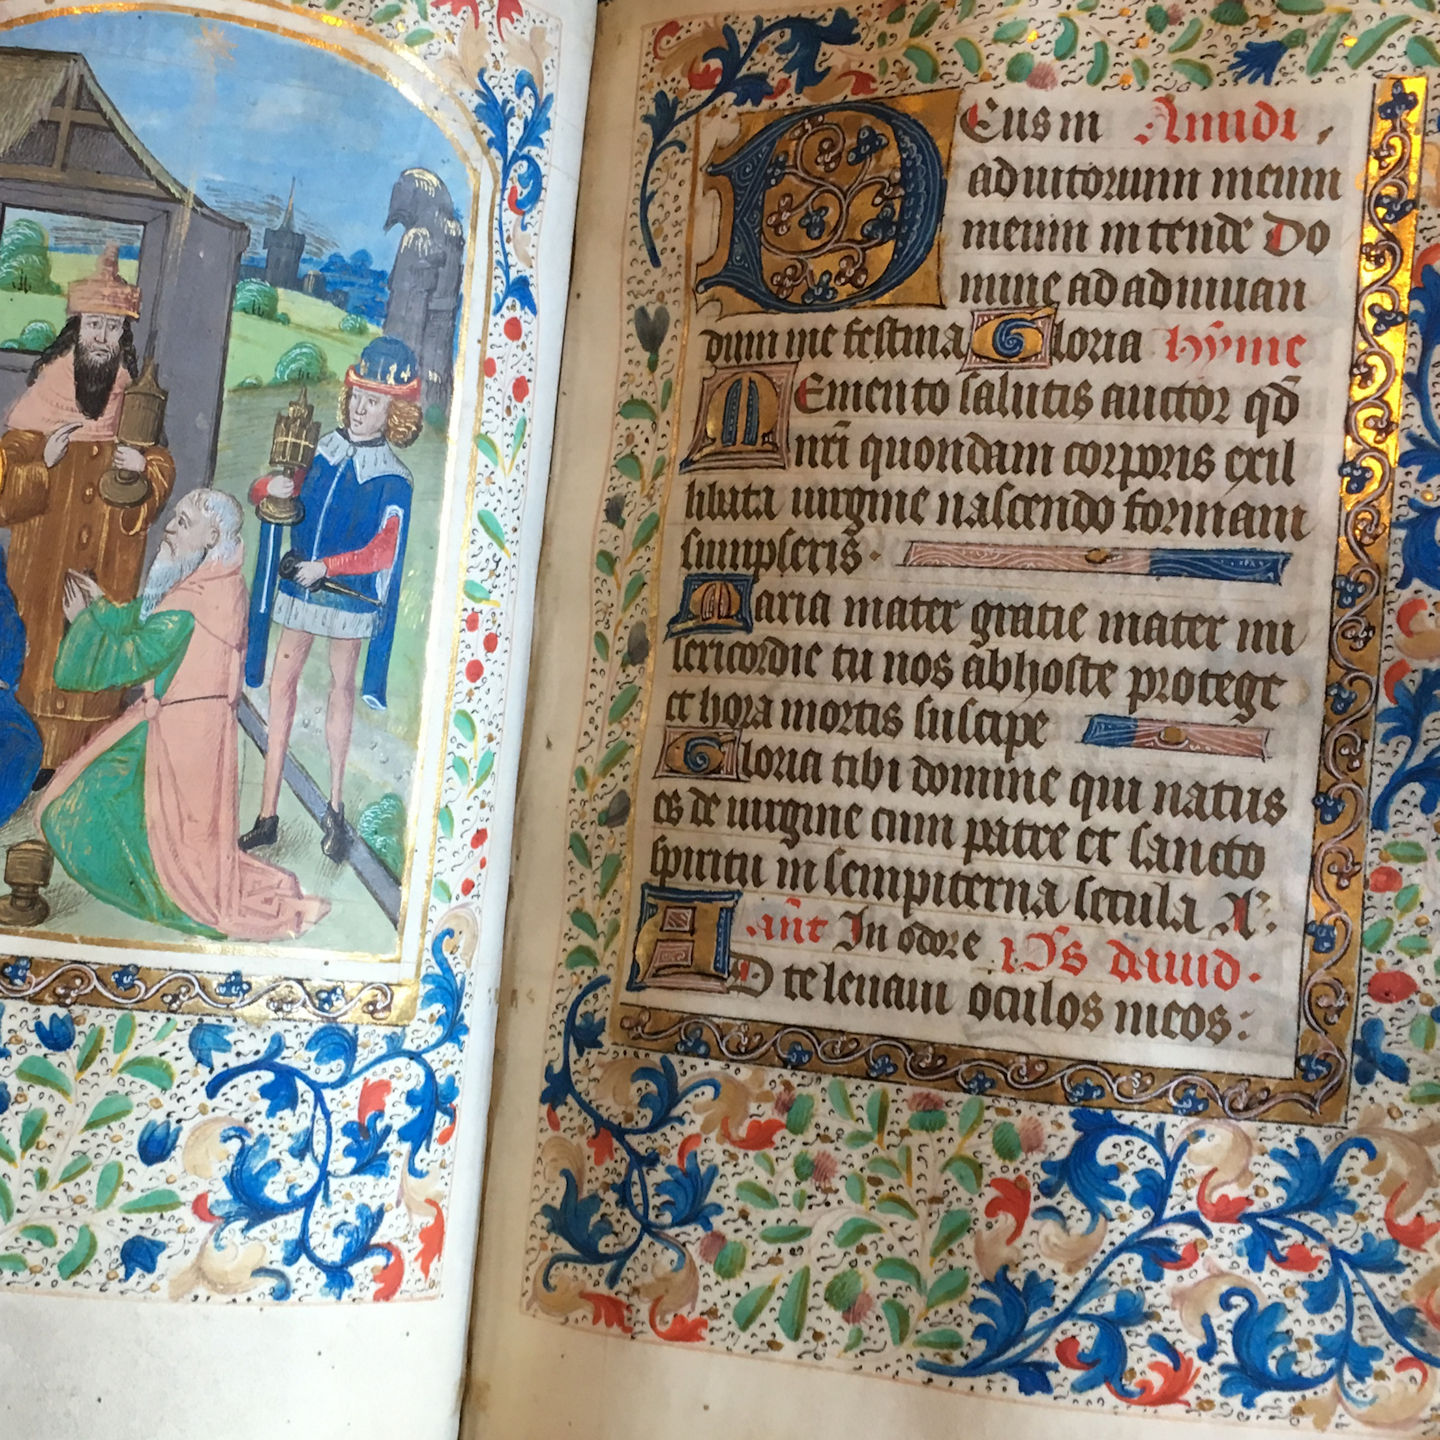 Deus in Ad uidi
adiutorium meum
meum intende Do
mine ad adiuuan
dum me festina Gloria hỹme
Memento salutis auctor qd̄
nrī quondam corporis exil
libata uirgine nascendo formam
sumpseris.
Maria mater gratie mater mi
sericordie tu nos abhoste protege
et hora mortis suscipe
Gloria tibi domine qui natus
es de uirgine cum patre et sancto
spiritu in sempiterna secula A:
.an̄t In odore dauid.
AD te leuaui oculos meos: